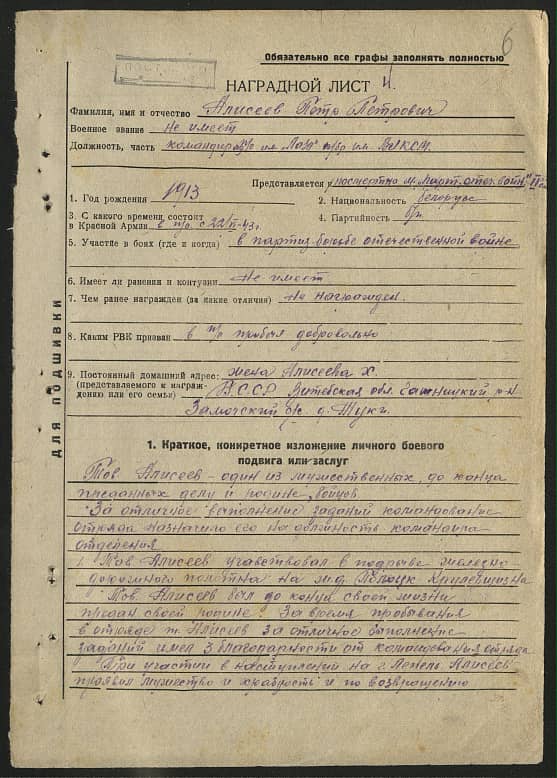 6
Обязательно все графы заполнять полностью
НАГРАДНОЙ ЛИСТ 4.
Фамилия, имя и отчество Алисеев Петр Петрович
Военное звание не имеет
Должность, часть командира им. ВЛКСМ
Представляется посмертно м. "Парт. отеч. войн." II ст
1. Год рождения 1913
2. Национальность белорус
3. С какого времени состоит
в Красной Армии в п/о с 22/II-43г.
4. Партийность б/п
5. Участие в боях (где и когда) в партиз. борьбе отечественной войне
6. Имеет ли ранения и контузии Не имеет
7. Чем ранее награжден (за какие отличия) Не награжден.
8. Каким РВК призван в п/о прибыл добровольно
9. Постоянный домашний адрес: жена Алисеева Х.
(представляемого к награж-
дению или его семьи) БССР Витебская обл. р-н
с/с д.
ДЛЯ ПОДШИВКИ
1. Краткое, конкретное изложение личного боевого
подвига или заслуг
Тов. Алисеев - один из мужественных, до конца
делу и родине, бойцов.
За отличное выполнение заданий командование
отряда назначило его на должность командира
отделения
Тов. Алисеев учавствовал в подрыве железно-
дорожного полотна на ж.д. Полоцк
Тов. Алисеев был до конца своей жизни
предан своей родине. За время пребывания
в отряде т. Алисеев за отличное выполнение
заданий имел 3 благодарности от командования отряда
При участии в наступлений на г. Лепель Алисеев
проявил мужество и храбрость и по возвращению